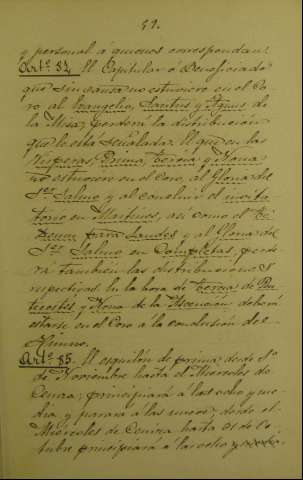 51.
y personal á quienes correspondan.
Artº 84. El Capitular ó Beneficiado
que sin causa no estuviere en el Co-
ro al Evangelio, Sanctus y Agnus de
la Misa, perderá la distribución
que le está señalada. El que en las
Vísperas, Prima, Tercia y Nona
no estuviere en el Coro, al Gloria del
1er Salmo y al concluir el invita-
torio en Maitines, así como el Te
Deum para Laudes y al Gloria del
1er Salmo en Completas, perde-
rá tambien las distribuciones
respectivas. En la hora de Tercia de Pen-
tecostés y Nona de la Ascención deberá
estarse en el Coro á la conclusión del
Himno.
Artº 85. El esquilón de prima, desde 1º
de Noviembre hasta el Miércoles de
Ceniza, principiará á las ocho y me-
dia y parará á las nueve; desde el
Miércoles de Ceniza hasta 31 de Oc-
tubre principiará á las ocho y